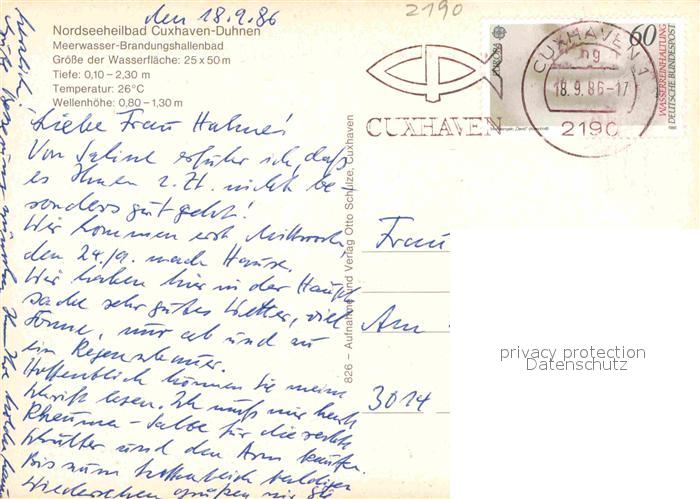 den 18.9.86
2190
Nordseeheilbad Cuxhaven-Duhnen
Meerwasser-Brandungshallenbad
Größe der Wasserfläche: 25 x 50 m
Tiefe: 0,10 – 2,30 m
Temperatur: 26°C
Wellenhöhe: 0,80 – 1,30 m
Liebe Frau
Von erfuhr ich, daß
es Ihnen z. Zt. nicht be
sonders gut geht!
Wir kommen erst Mittwoch
den 24./9. nach Hause.
Wir haben hier in der Haupt
sache sehr gutes Wetter, viel
Sonne, nur ab und zu
ein Regenschauer.
Hoffentlich können Sie meine
Schrift lesen. Ich muß mir heute
Rheuma-Salbe für die rechte
Schulter und den Arm kaufen.
Bis zum hoffentlich baldigen
Wiedersehen grüßen
826 – Aufnahme und Verlag Otto Schulze, Cuxhaven
CUXHAVEN
EUROPA
60
WASSERREINHALTUNG
DEUTSCHE BUNDESPOST
CUXHAVEN 1
ng
18.9.86-17
2190
Frau
Am
3014
privacy protection
Datenschutz